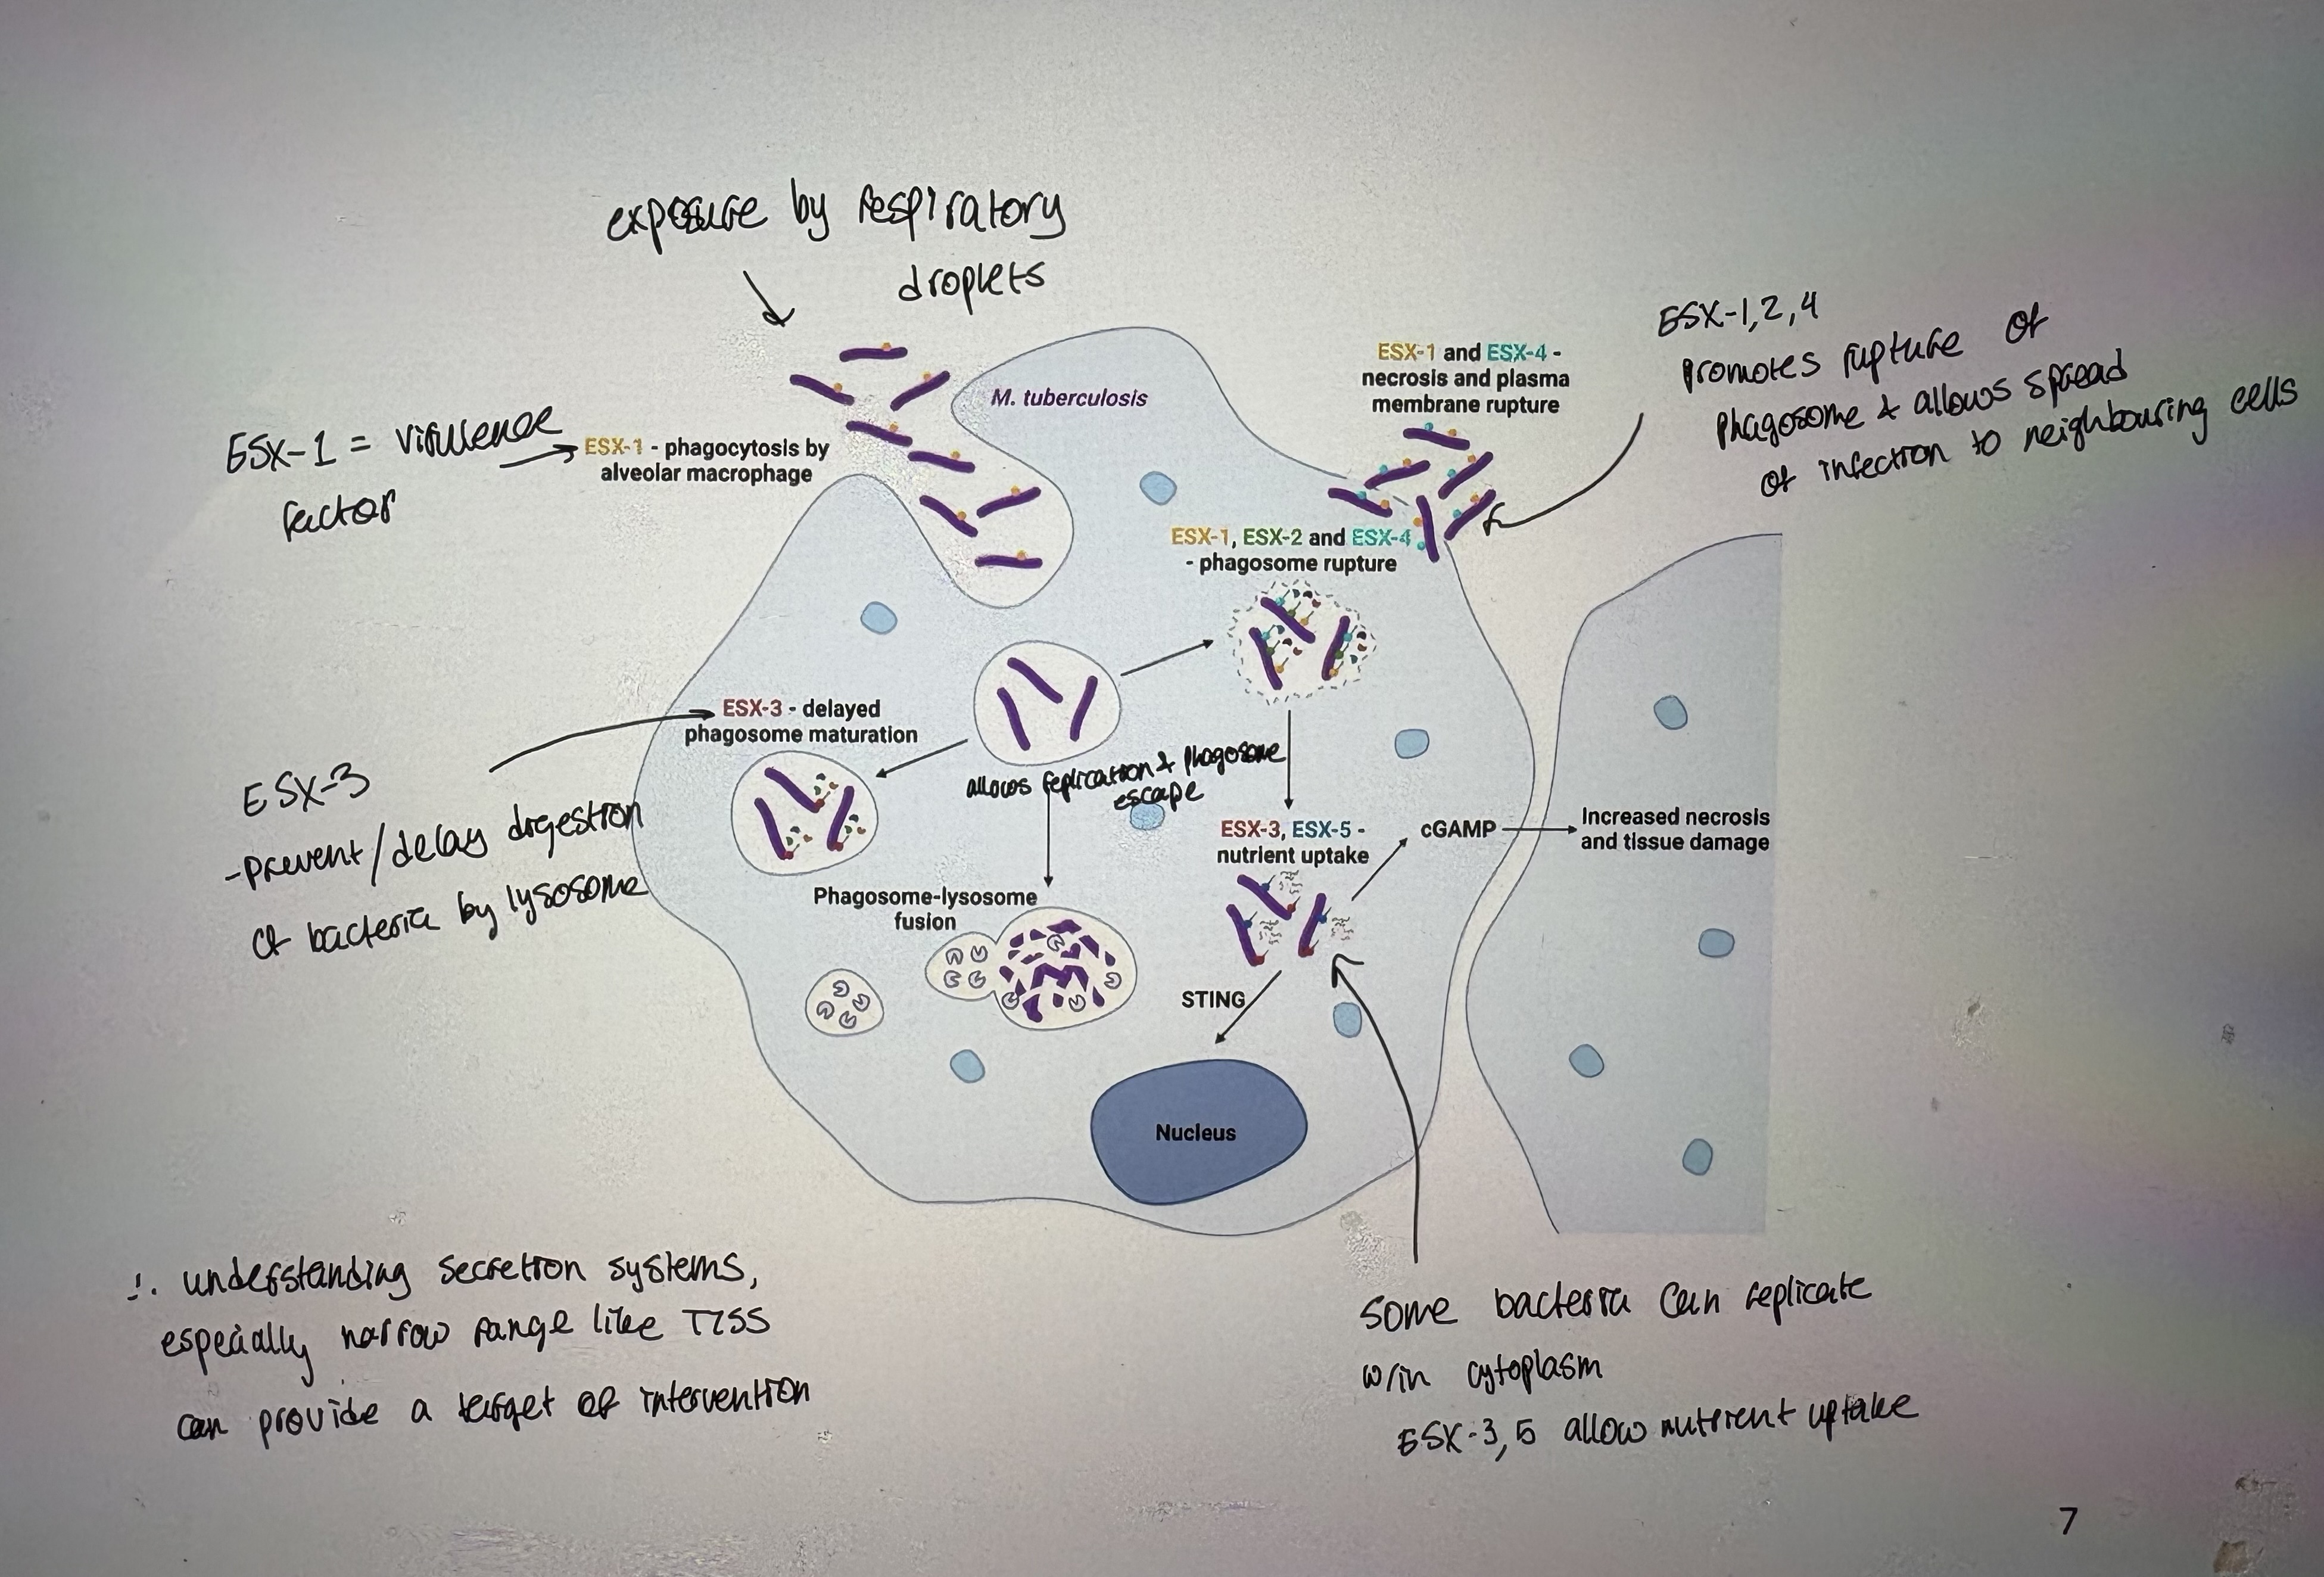 exposure by respiratory
droplets
ESX-1 = virulence
factor
ESX-1 - phagocytosis by
alveolar macrophage
M. tuberculosis
ESX-1 and ESX-4 -
necrosis and plasma
membrane rupture
ESX-1,2,4
promotes rupture of
phagosome & allows spread
of infection to neighbouring cells
ESX-1, ESX-2 and ESX-4
- phagosome rupture
ESX-3 - delayed
phagosome maturation
ESX-3
-prevent/delay digestion
of bacteria by lysosome
allows replication & phagosome
escape
Phagosome-lysosome
fusion
ESX-3, ESX-5 -
nutrient uptake
cGAMP
Increased necrosis
and tissue damage
STING
Nucleus
∴ understanding secretion systems,
especially narrow range like T7SS
can provide a target of intervention
some bacteria can replicate
w/in cytoplasm
ESX-3,5 allow nutrient uptake
7